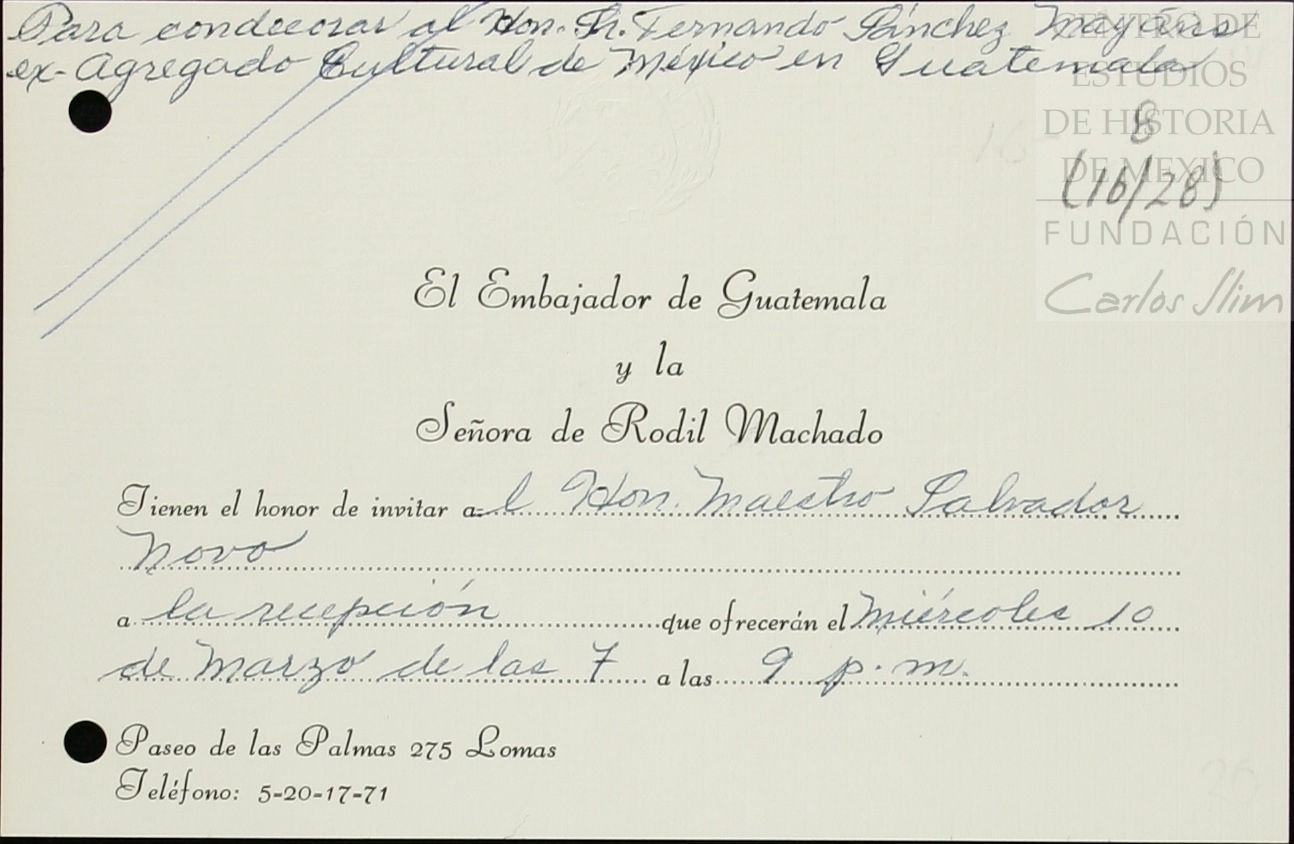 Para condecorar al Hon. Sr. Fernando Sánchez Mayáns
ex-Agregado Cultural de México en Guatemala
CENTRO DE
ESTUDIOS
DE HISTORIA
DE MEXICO
FUNDACIÓN
Carlos Slim
8
(16/28)
El Embajador de Guatemala
y la
Señora de Rodil Machado
Tienen el honor de invitar a l Hon. Maestro Salvador
Novo
a la recepción que ofrecerán el Miércoles 10
de Marzo de las 7 a las 9 p.m.
Paseo de las Palmas 275 Lomas
Teléfono: 5-20-17-71